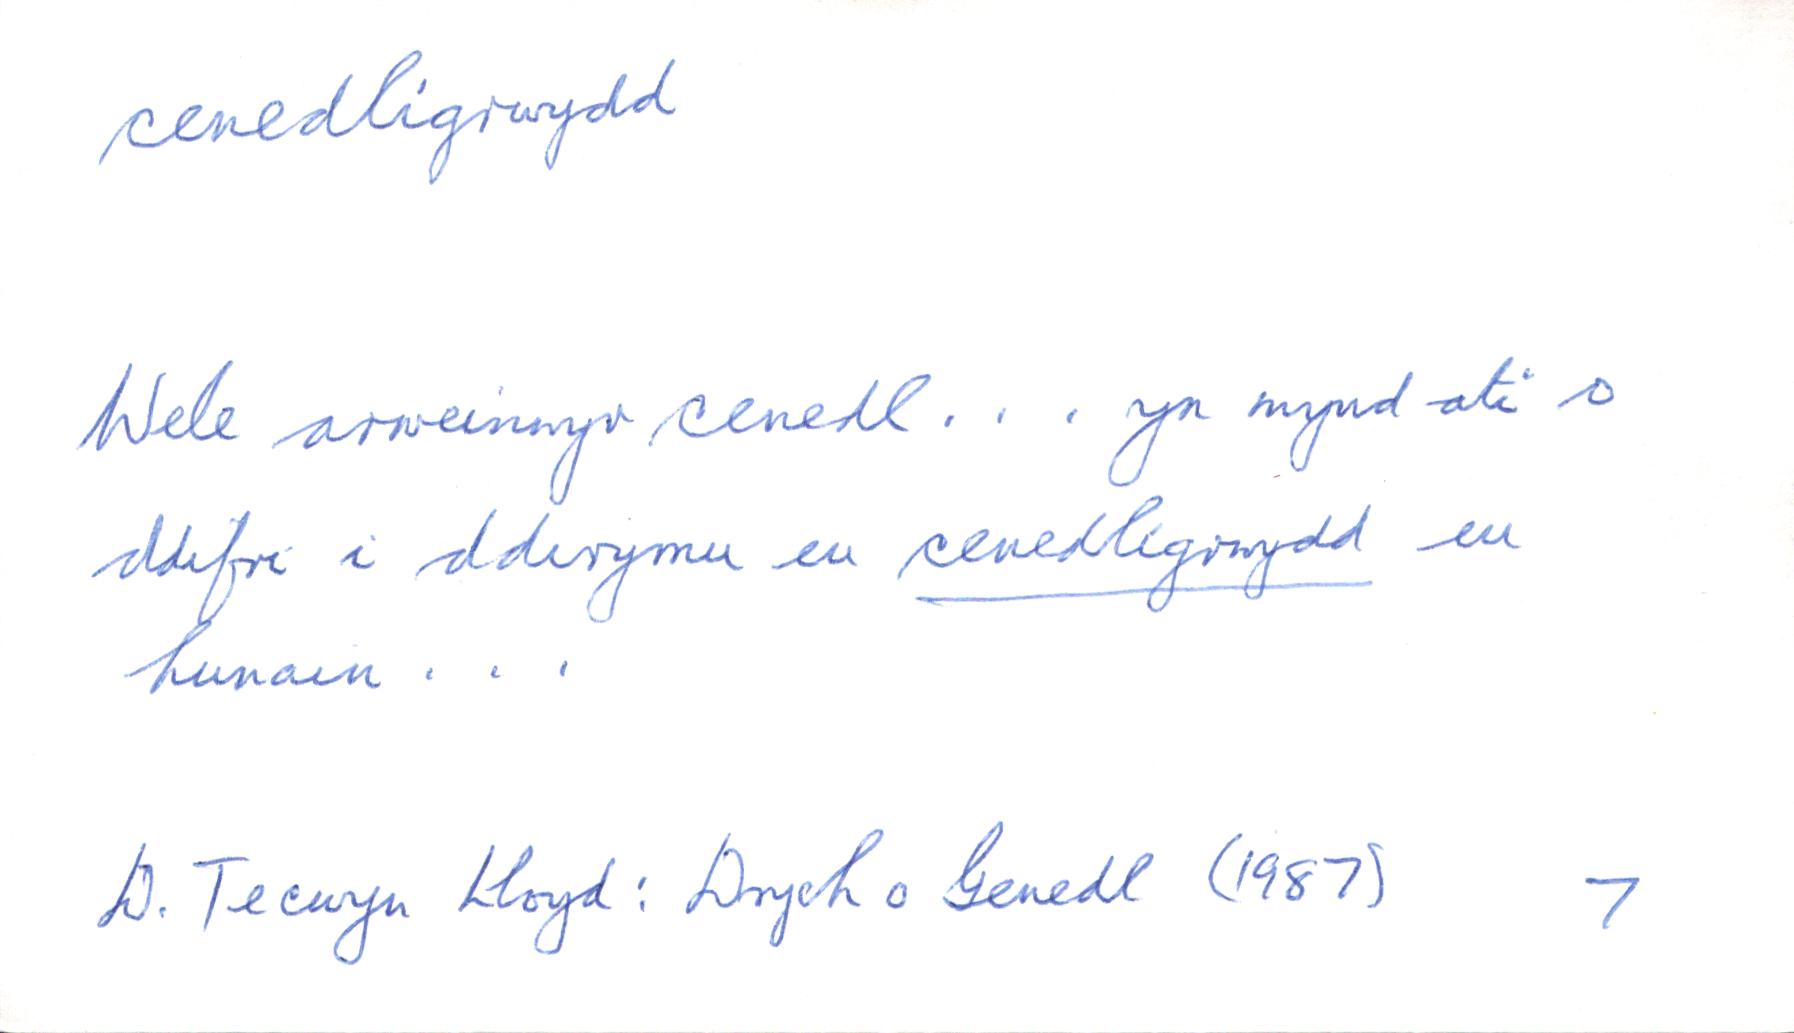 cenedligrwydd
Wele arweinwyr cenedl . . . yn mynd ati o
ddifri i ddirymu eu cenedligrwydd eu
hunain . . .
D. Tecwyn Lloyd: Drych o Genedl (1987) 7